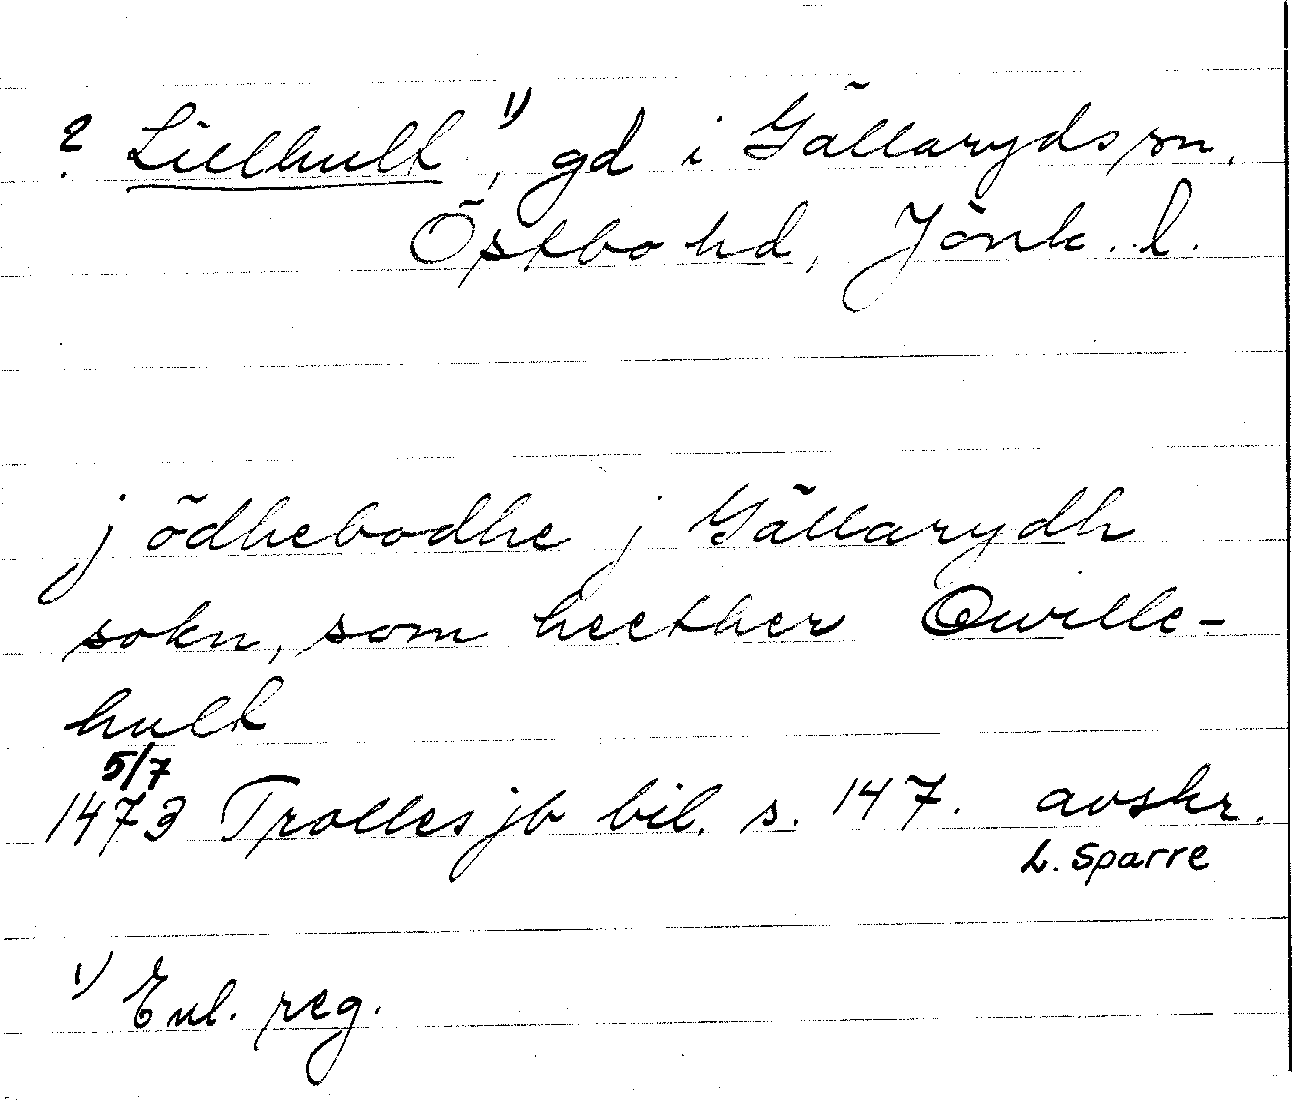 ? Lillhult ¹⁾, gd i Gällaryds sn.
Östbo hd, Jönk. l.
j ödhebodhe j Gällarydh
sokn, som heether Qwille-
hult
5/7
1473 Trolles jb bil. s. 147. avskr.
L. Sparre
¹⁾ Enl. reg.